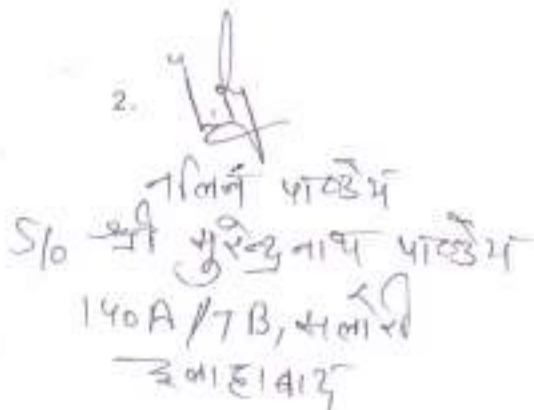 2.
नलिन पाण्डेय
S/o श्री सुरेन्द्र नाथ पाण्डेय
140A/7B, सलोरी
इलाहाबाद